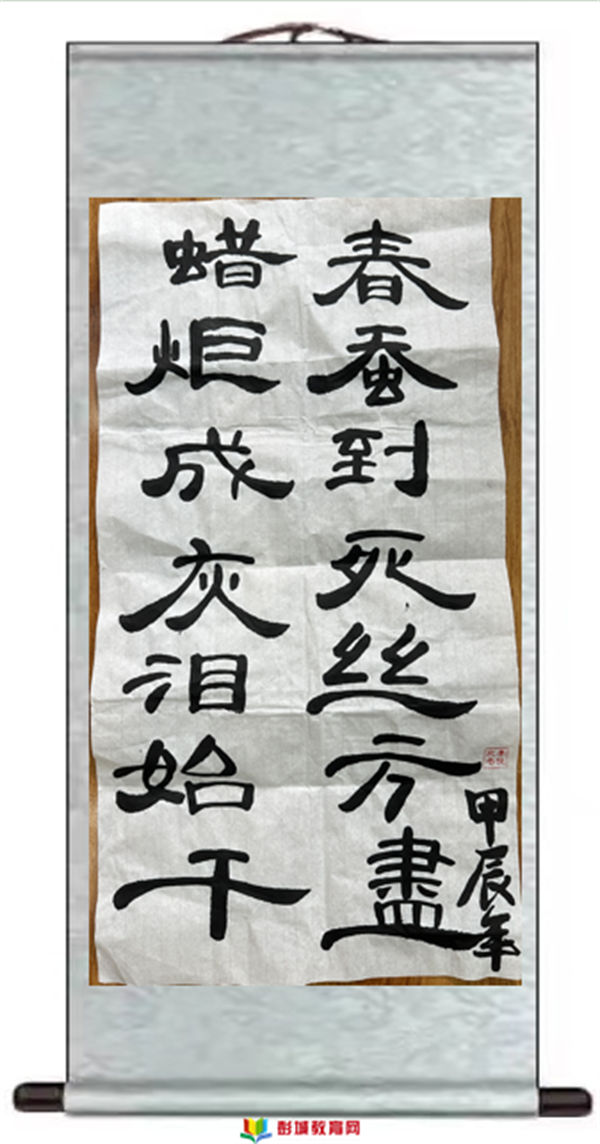 春蚕到死丝方盡
蜡炬成灰泪始干
甲辰年
彭城教育网